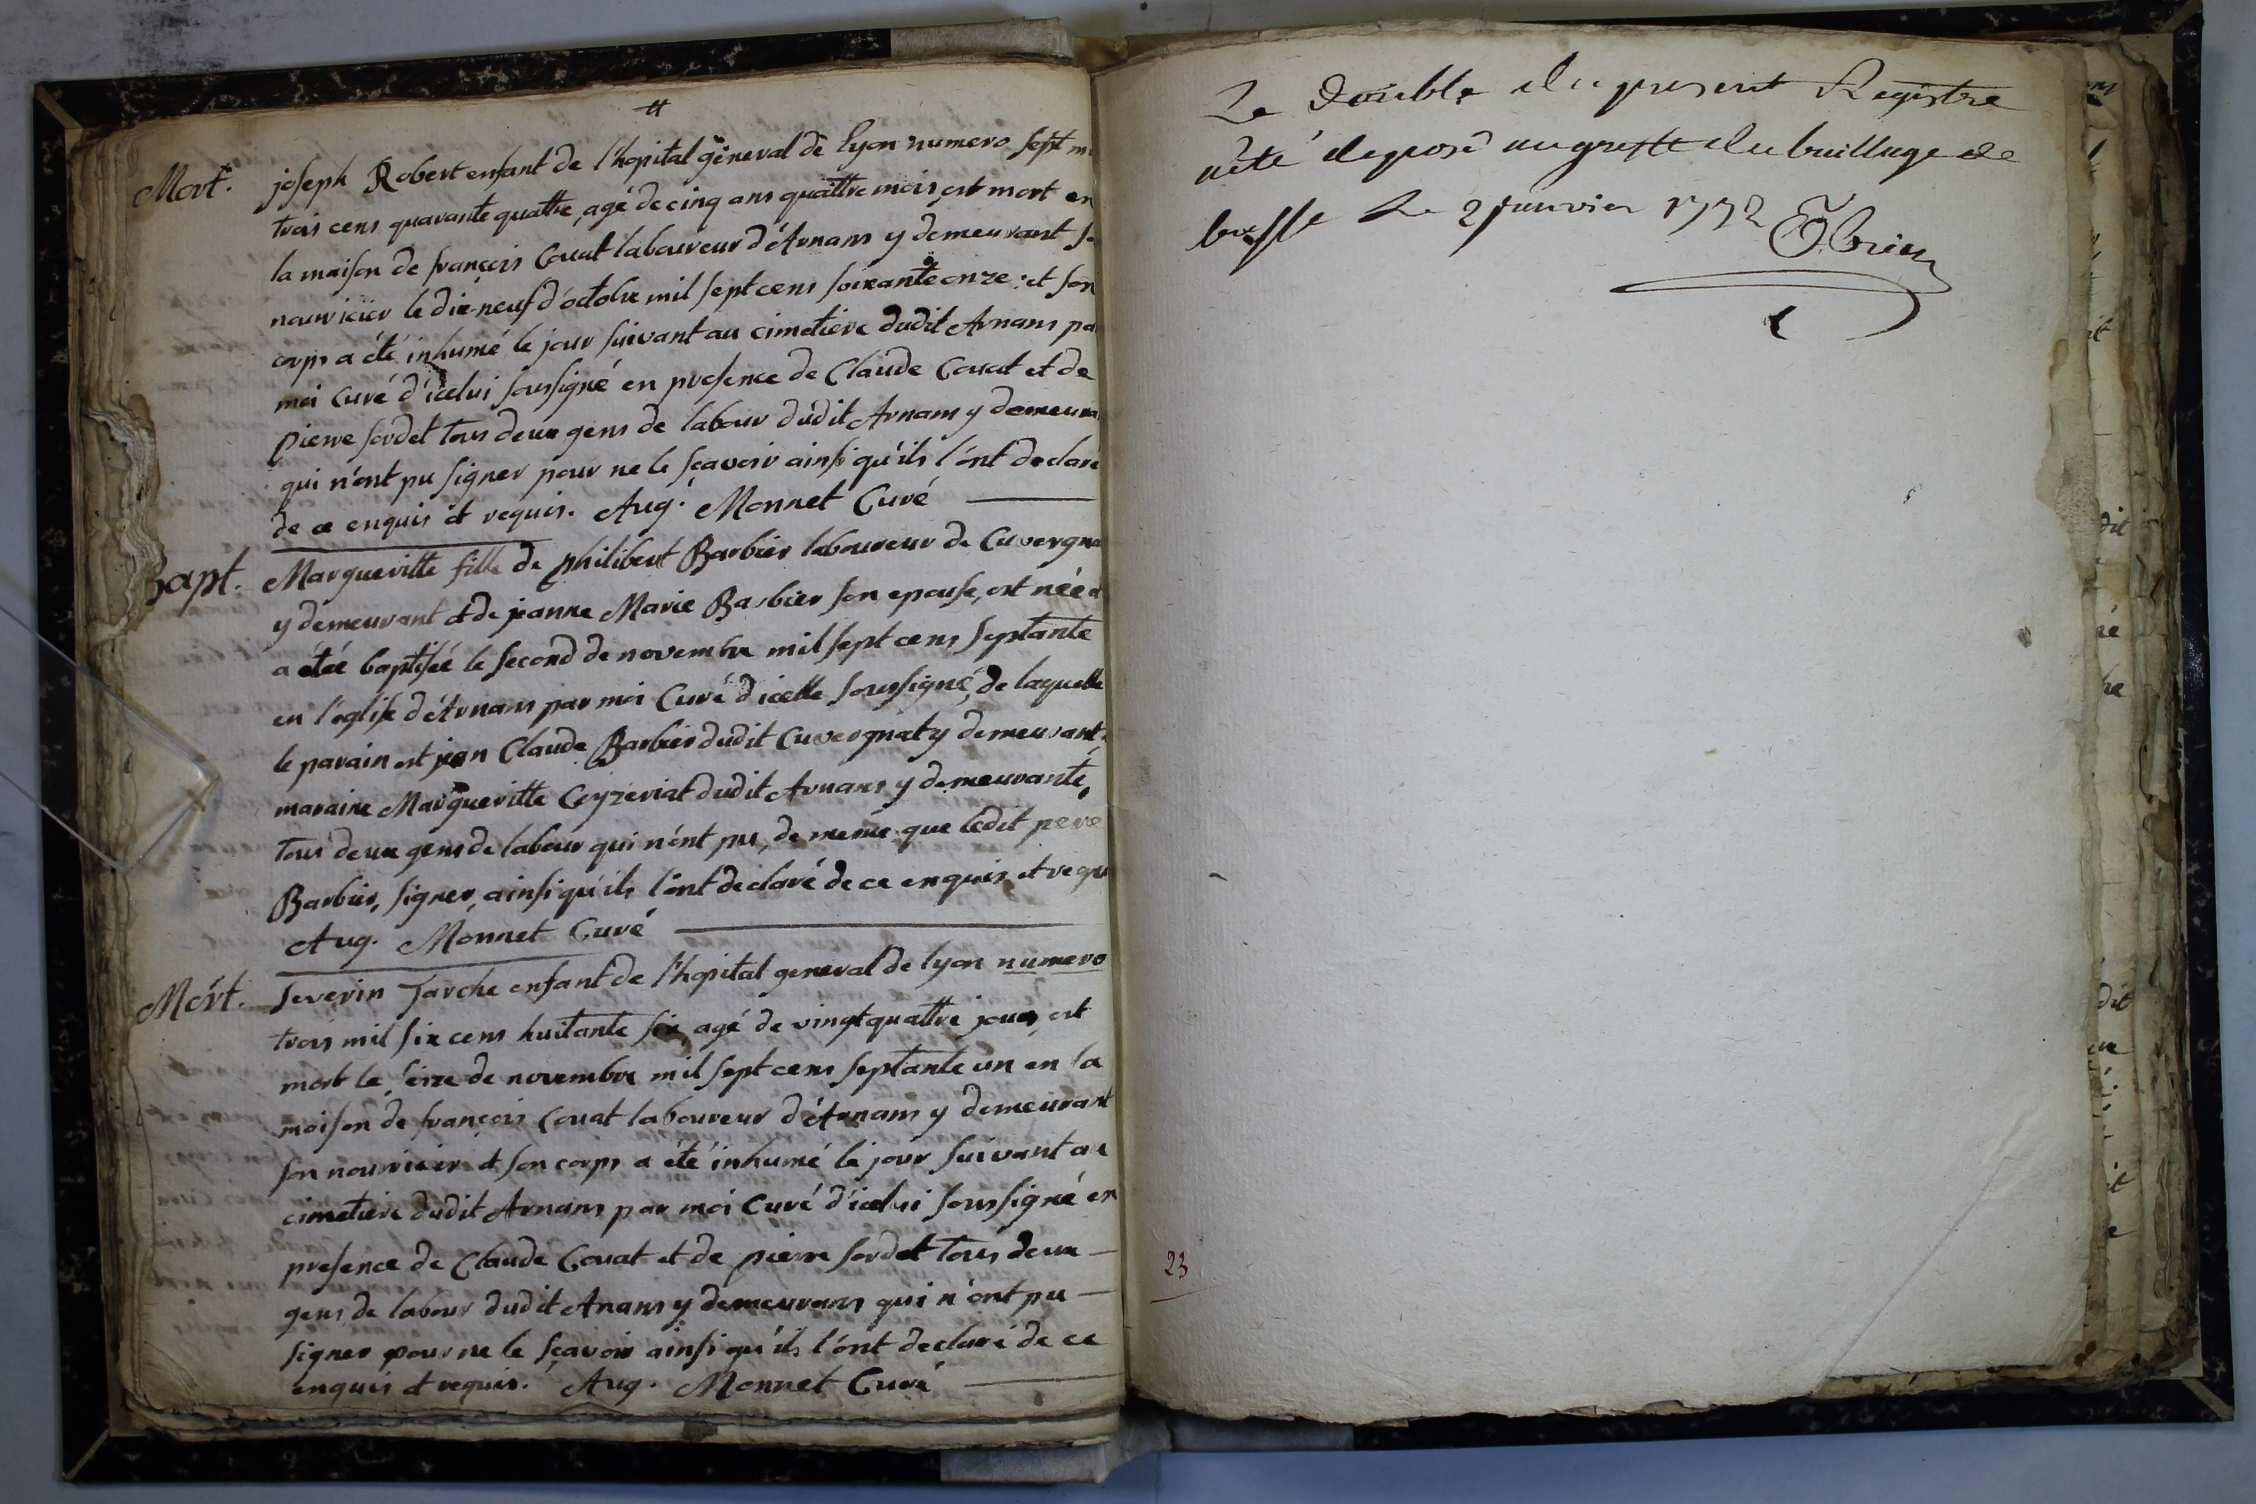 Mort. joseph Robert enfant de l'hopital géneral de lyon numero sept m
trois cens quarante quattre, agé de cinq ans quattre mois, est mort en
la maison de françois Couat laboureur d'Arnans y demeurant
nourricier le dix-neuf d'octobre mil sept cens soixante onze : et son
corps a été inhumé le jour suivant au cimetiere dudit Arnans pa
moi Curé d'icelui soussigné en presence de Claude Couat et de
pierre sordet tous deux gens de labour dudit Arnans y demeura
qui n'ont pu signer pour ne le sçavoir ainsi qu'ils l'ont declaré
de ce enquis et requis. Aug. Monnet Curé
Bapt. Margueritte fille de philibert Barbier laboureur de Cuvergna
y demeurant et de jeanne Marie Barbier son epouse, est née et
a étée baptisée le second de novembre mil sept cens septante
en l'eglise d'Arnans par moi Curé d'icelle soussigné, de laquelle
le parain est jean Claude Barbier dudit Cuvergnat y demeurant
maraine Margueritte Ceyzeriat dudit Arnans y demeurante,
tous deux gens de labour qui n'ont pu, de meme que ledit pere
Barbier, signer, ainsi qu'ils l'ont declaré de ce enquis et requ
Aug. Monnet Curé
Mort. Severin Tarche enfant de l'hopital general de lyon numero
trois mil six cens huitante six, agé de vingt quattre jours, est
mort le seize de novembre mil sept cens septante un en la
maison de françois Couat laboureur d'Arnans y demeurant
son nourricier et son corps a été inhumé le jour suivant au
cimetiere dudit Arnans par moi Curé d'icelui soussigné en
presence de Claude Couat et de pierre sordet tous deux
gens de labour dudit Anans y demeurans qui n'ont pu
signer pour ne le sçavoir ainsi qu'ils l'ont declaré de ce
enquis et requis. Aug. Monnet Curé
Le double du present Registre
aété deposé au greffe du bailliage de
bresse Le 2 janvier 1772
23